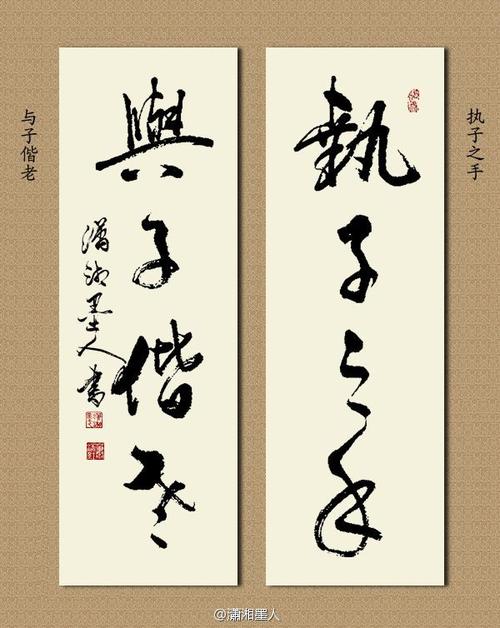 执子之手
執子之手
與子偕老
潇湘墨人書
与子偕老
@瀟湘墨人